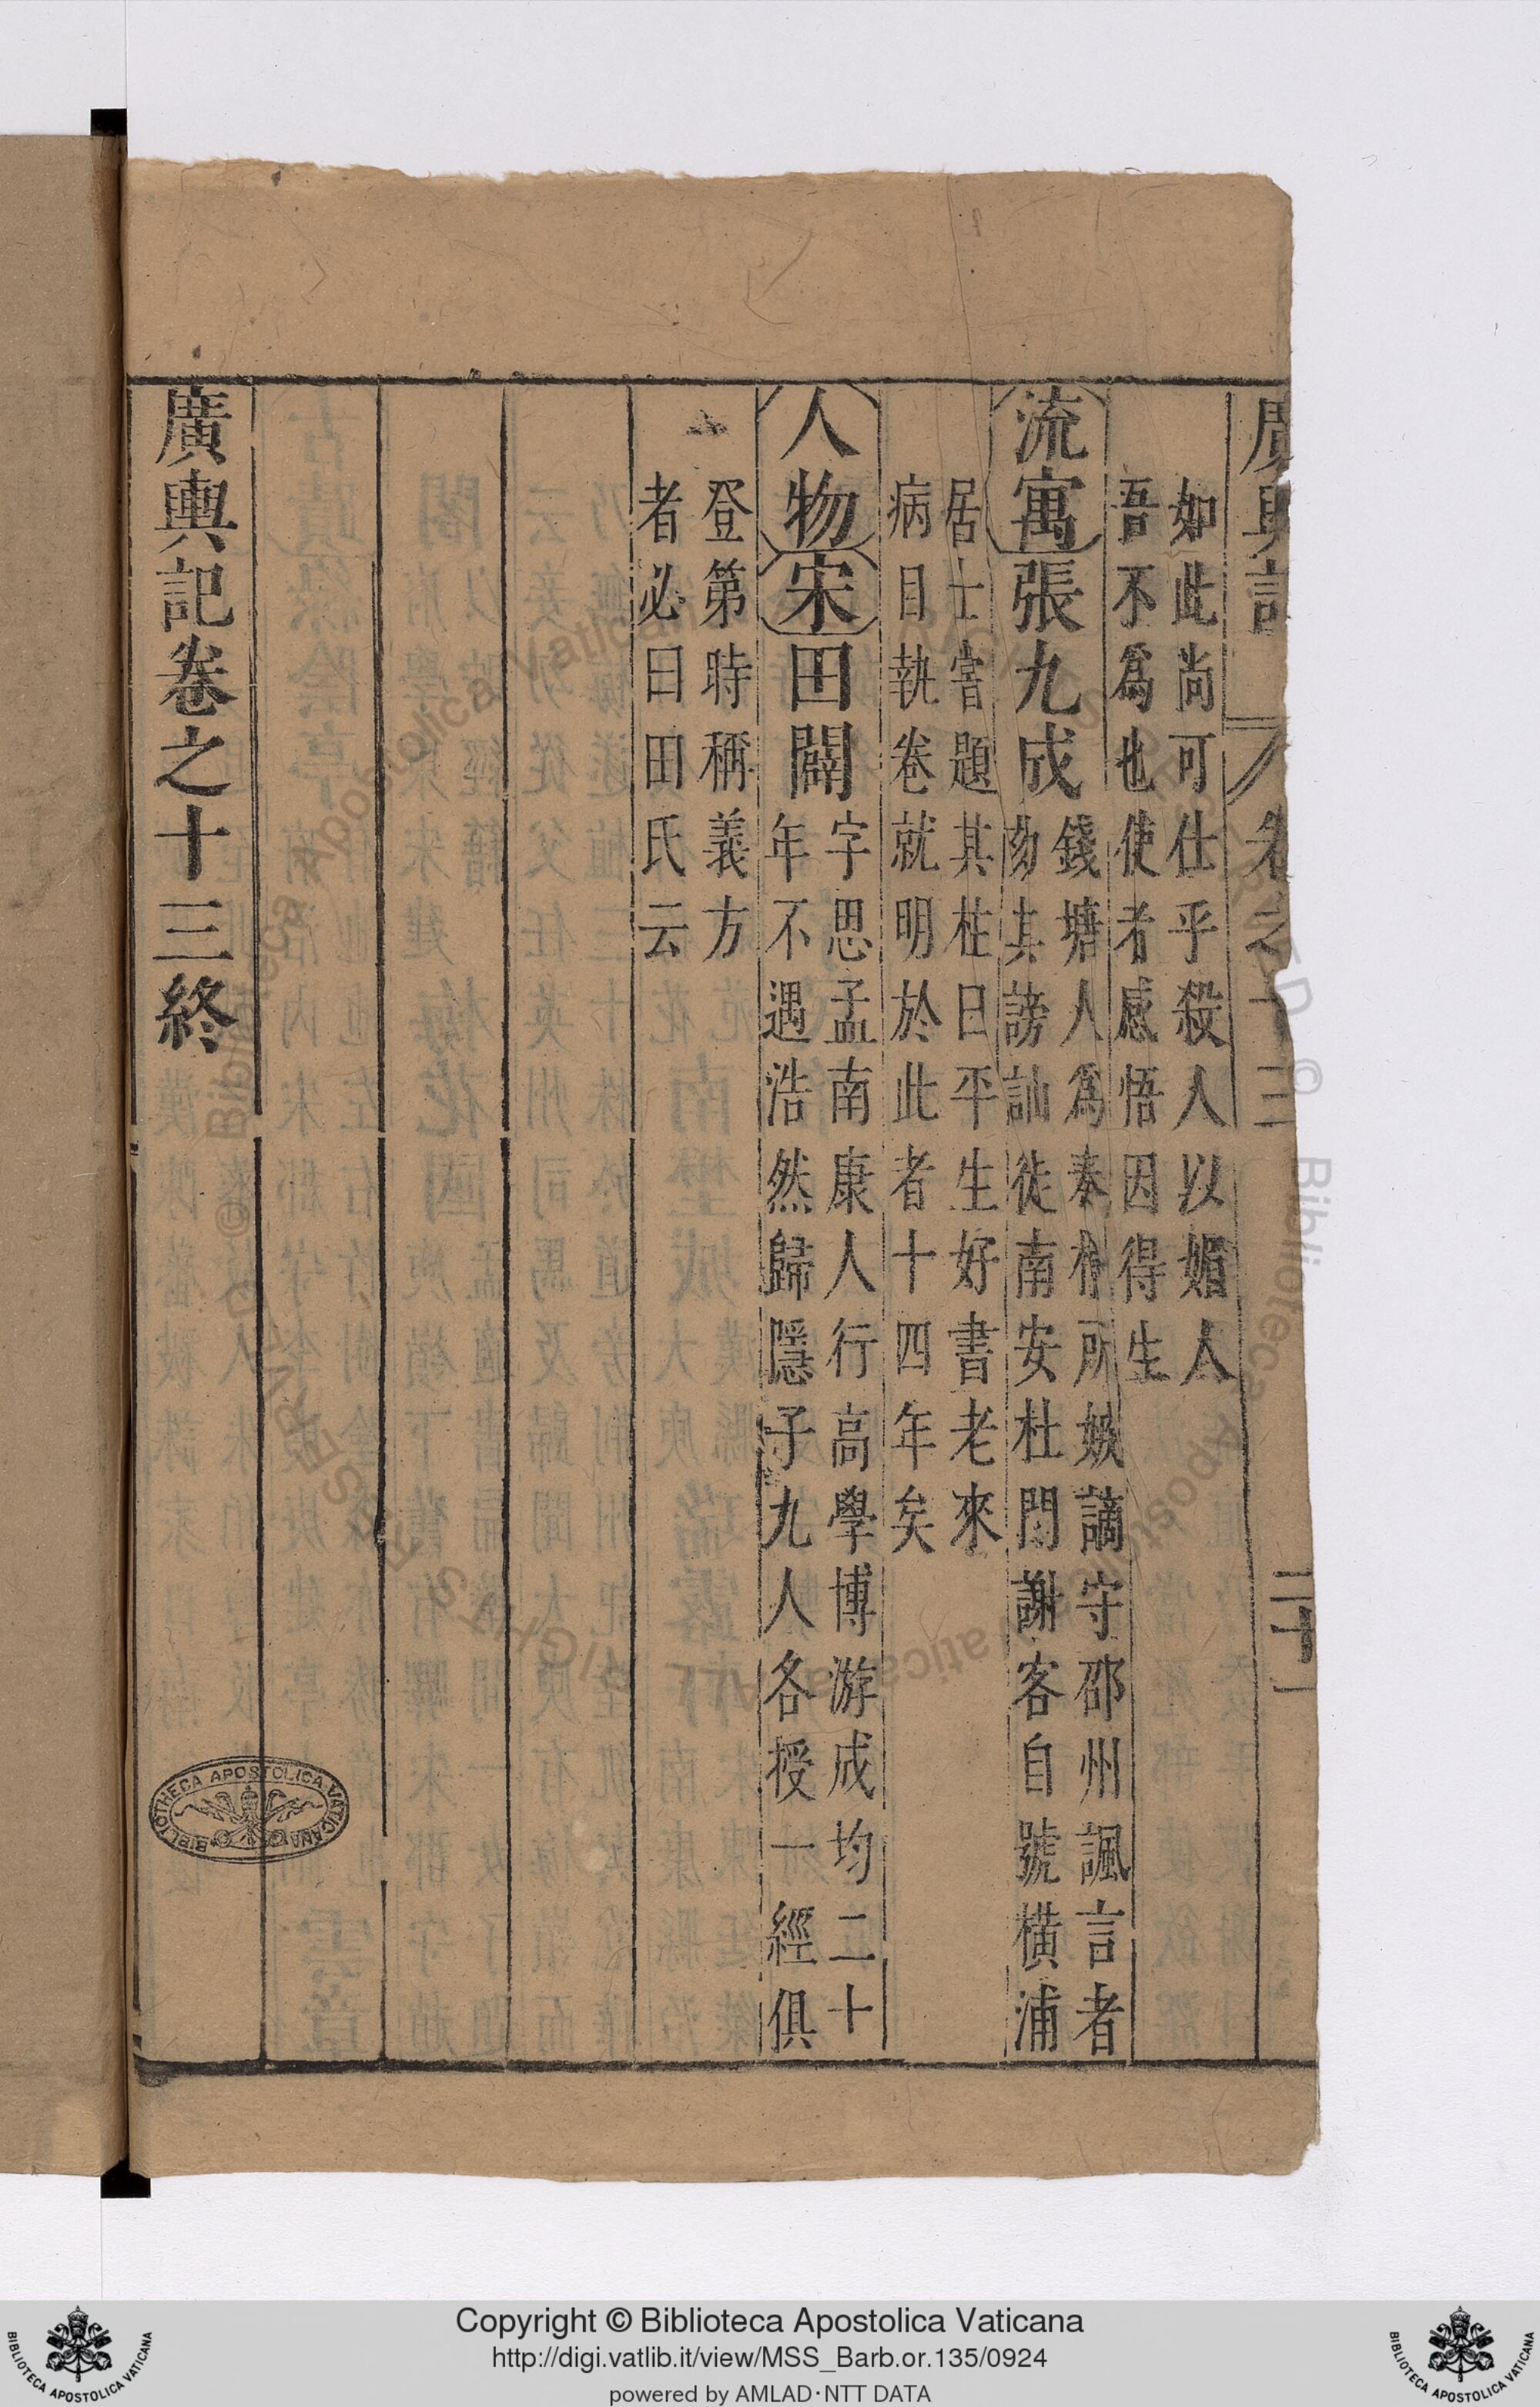 廣輿記 卷之十三 二十一
如此尚可仕乎殺人以媚人
吾不爲也使者感悟因得生
流寓 張九成
錢塘人爲秦檜所嫉謫守邵州諷言者
劾其謗訕徙南安杜門謝客自號橫浦
居士嘗題其柱曰平生好書老來
病目執卷就明於此者十四年矣
人物 宋 田闢
字思孟南康人行高學博游成均二十
年不遇浩然歸隱子九人各授一經俱
登第時稱義方
者必曰田氏云
廣輿記卷之十三終
BIBLIOTHECA APOSTOLICA VATICANA
Copyright © Biblioteca Apostolica Vaticana
http://digi.vatlib.it/view/MSS_Barb.or.135/0924
powered by AMLAD·NTT DATA
BIBLIOTECA APOSTOLICA VATICANA
BIBLIOTECA APOSTOLICA VATICANA